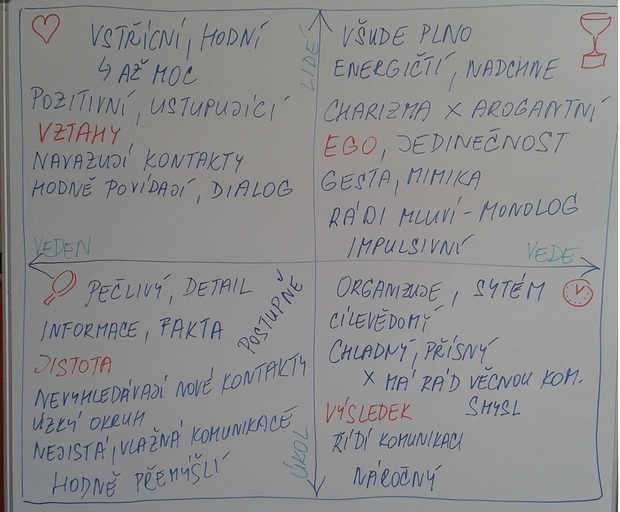 VSTŘÍCNÍ, HODNÍ
↳ AŽ MOC
POZITIVNÍ, USTUPUJÍCÍ
VZTAHY
NAVAZUJÍ KONTAKTY
HODNĚ POVÍDAJÍ, DIALOG
LIDÉ
VŠUDE PLNO
ENERGIČTÍ, NADCHNE
CHARIZMA X AROGANTNÍ
EGO, JEDINEČNOST
GESTA, MIMIKA
RÁDI MLUVÍ - MONOLOG
IMPULSIVNÍ
VEDEN
VEDE
PEČLIVÝ, DETAIL
INFORMACE, FAKTA
POSTUPNĚ
JISTOTA
NEVYHLEDÁVAJÍ NOVÉ KONTAKTY
ÚZKÝ OKRUH
NEJISTÁ, VLAŽNÁ KOMUNIKACE
HODNĚ PŘEMÝŠLÍ
ÚKOL
ORGANIZUJE, SYTÉM
CÍLEVĚDOMÝ
CHLADNÝ, PŘÍSNÝ
X MÁ RÁD VĚCNOU KOM.
VÝSLEDEK SMYSL
ŘÍDÍ KOMUNIKACI
NÁROČNÝ